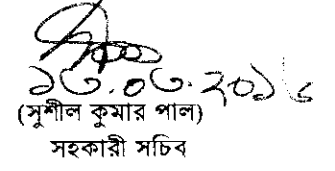 ১৩.০৩.২০১৬
(সুশীল কুমার পাল)
সহকারী সচিব